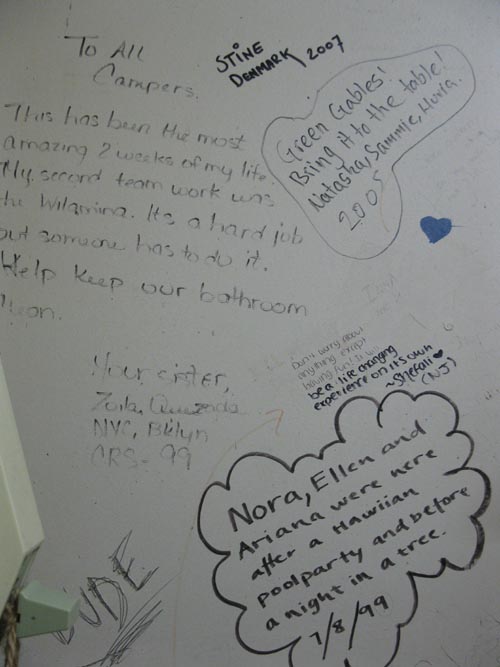 To All
Campers.
This has been the most
amazing 2 weeks of my life.
My second team work was
the Wilamina. Its a hard job
but someone has to do it.
Help keep our bathroom
clean.
Your sister,
Zoila, Quezada
NYC, Bklyn
CRS-99
STINE
DENMARK 2007
Green Gables!
Bring it to the table!
Natasha, Sammie,
2005
Don't worry about
anything except
having fun
be a life changing
experience on its own
~Shefali ♥
(NJ)
Nora, Ellen and
Ariana were here
after a Hawiian
poolparty and before
a night in a tree.
7/8/99